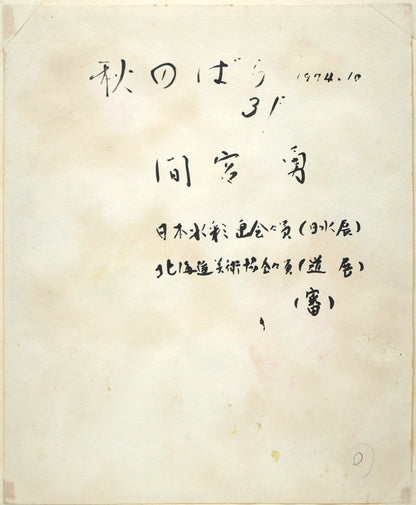 秋のばら 1974.10
3F
間宮 勇
日本水彩画会々員(日水展)
北海道美術協会々員(道展)
(審)